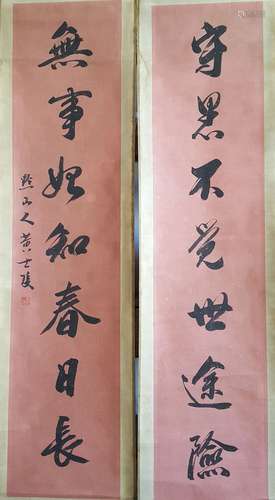 守黑不覺世途險
無事始知春日長
黟山人黄士陵